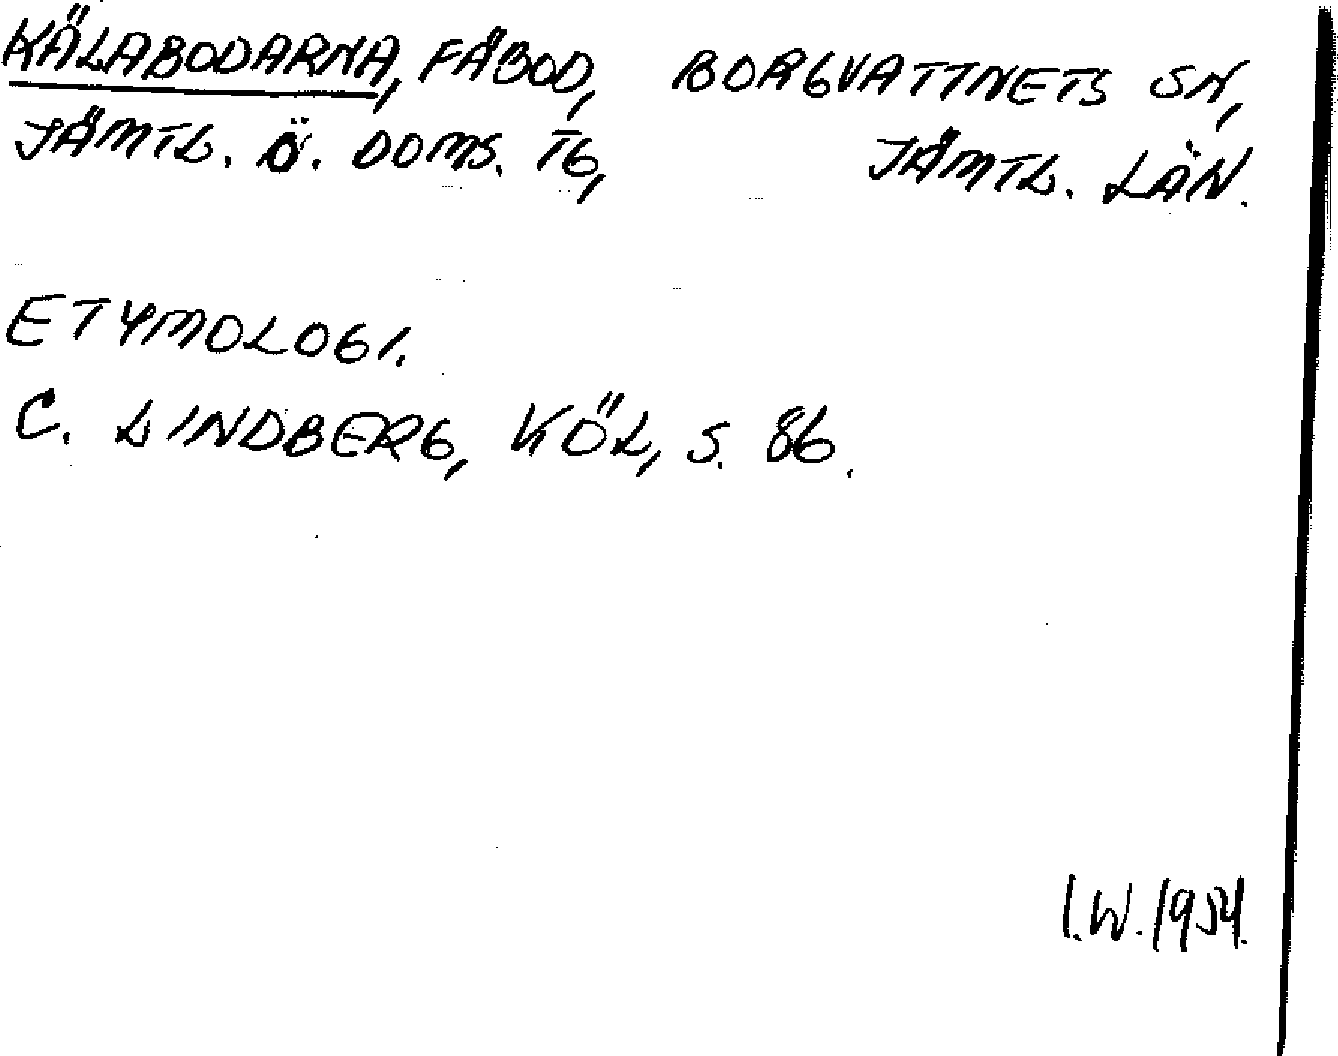 KÄLABODARNA, FÄBOD, BORGVATTNETS SN,
JÄMTL. Ö. DOMS. TG, JÄMTL. LÄN.
ETYMOLOGI.
C. LINDBERG, KÖL, S. 86.
I.W. 1954.